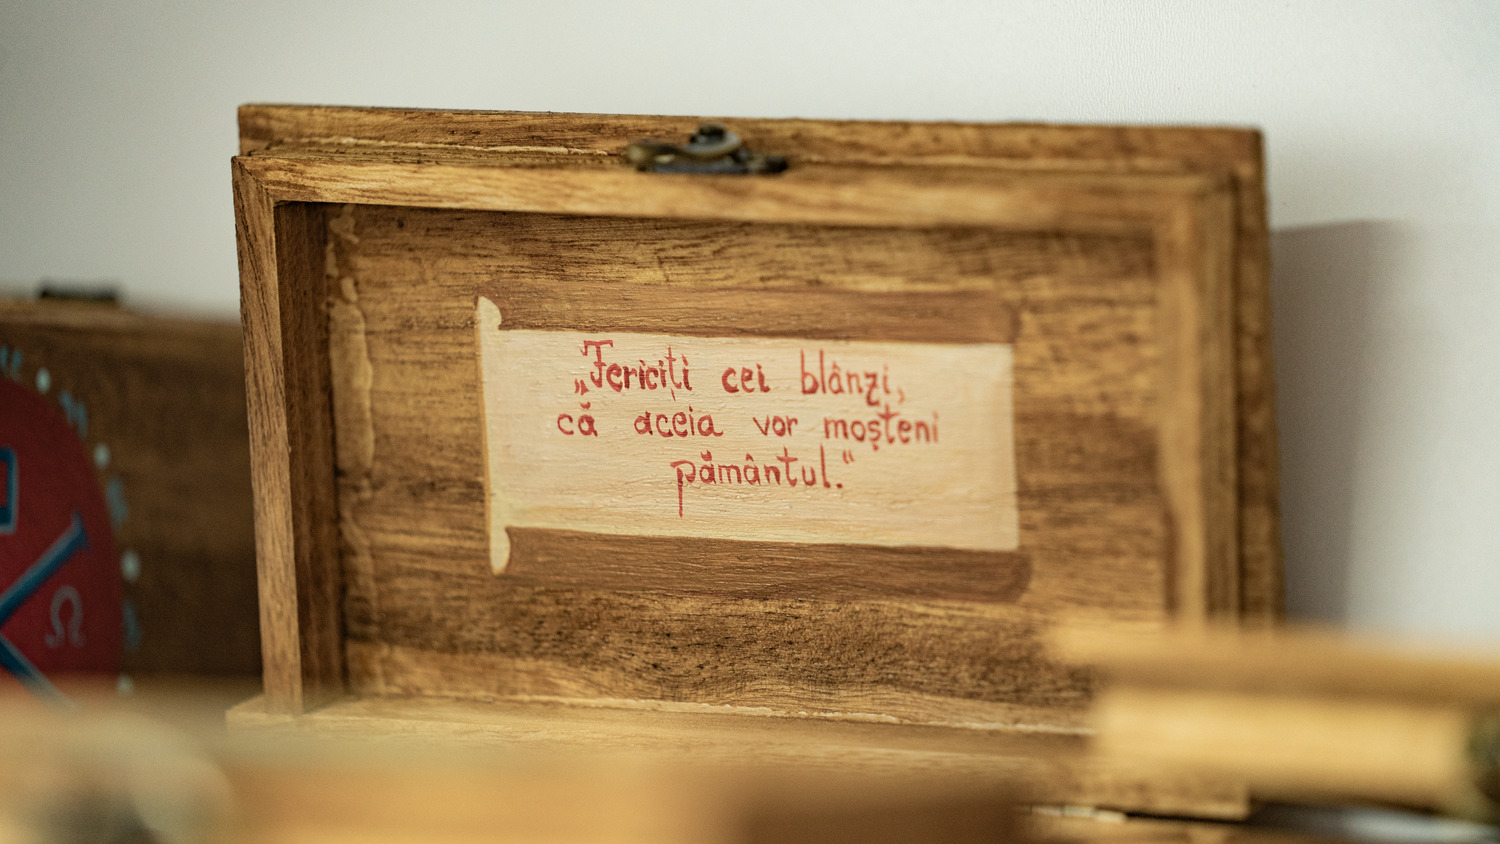 „Fericiți cei blânzi,
că aceia vor moșteni
pământul.“
Ω